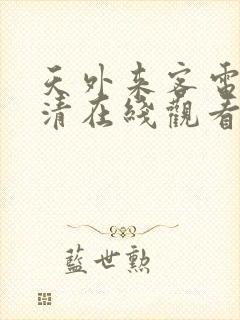 天外来客電
清在綫觀看
藍世勲